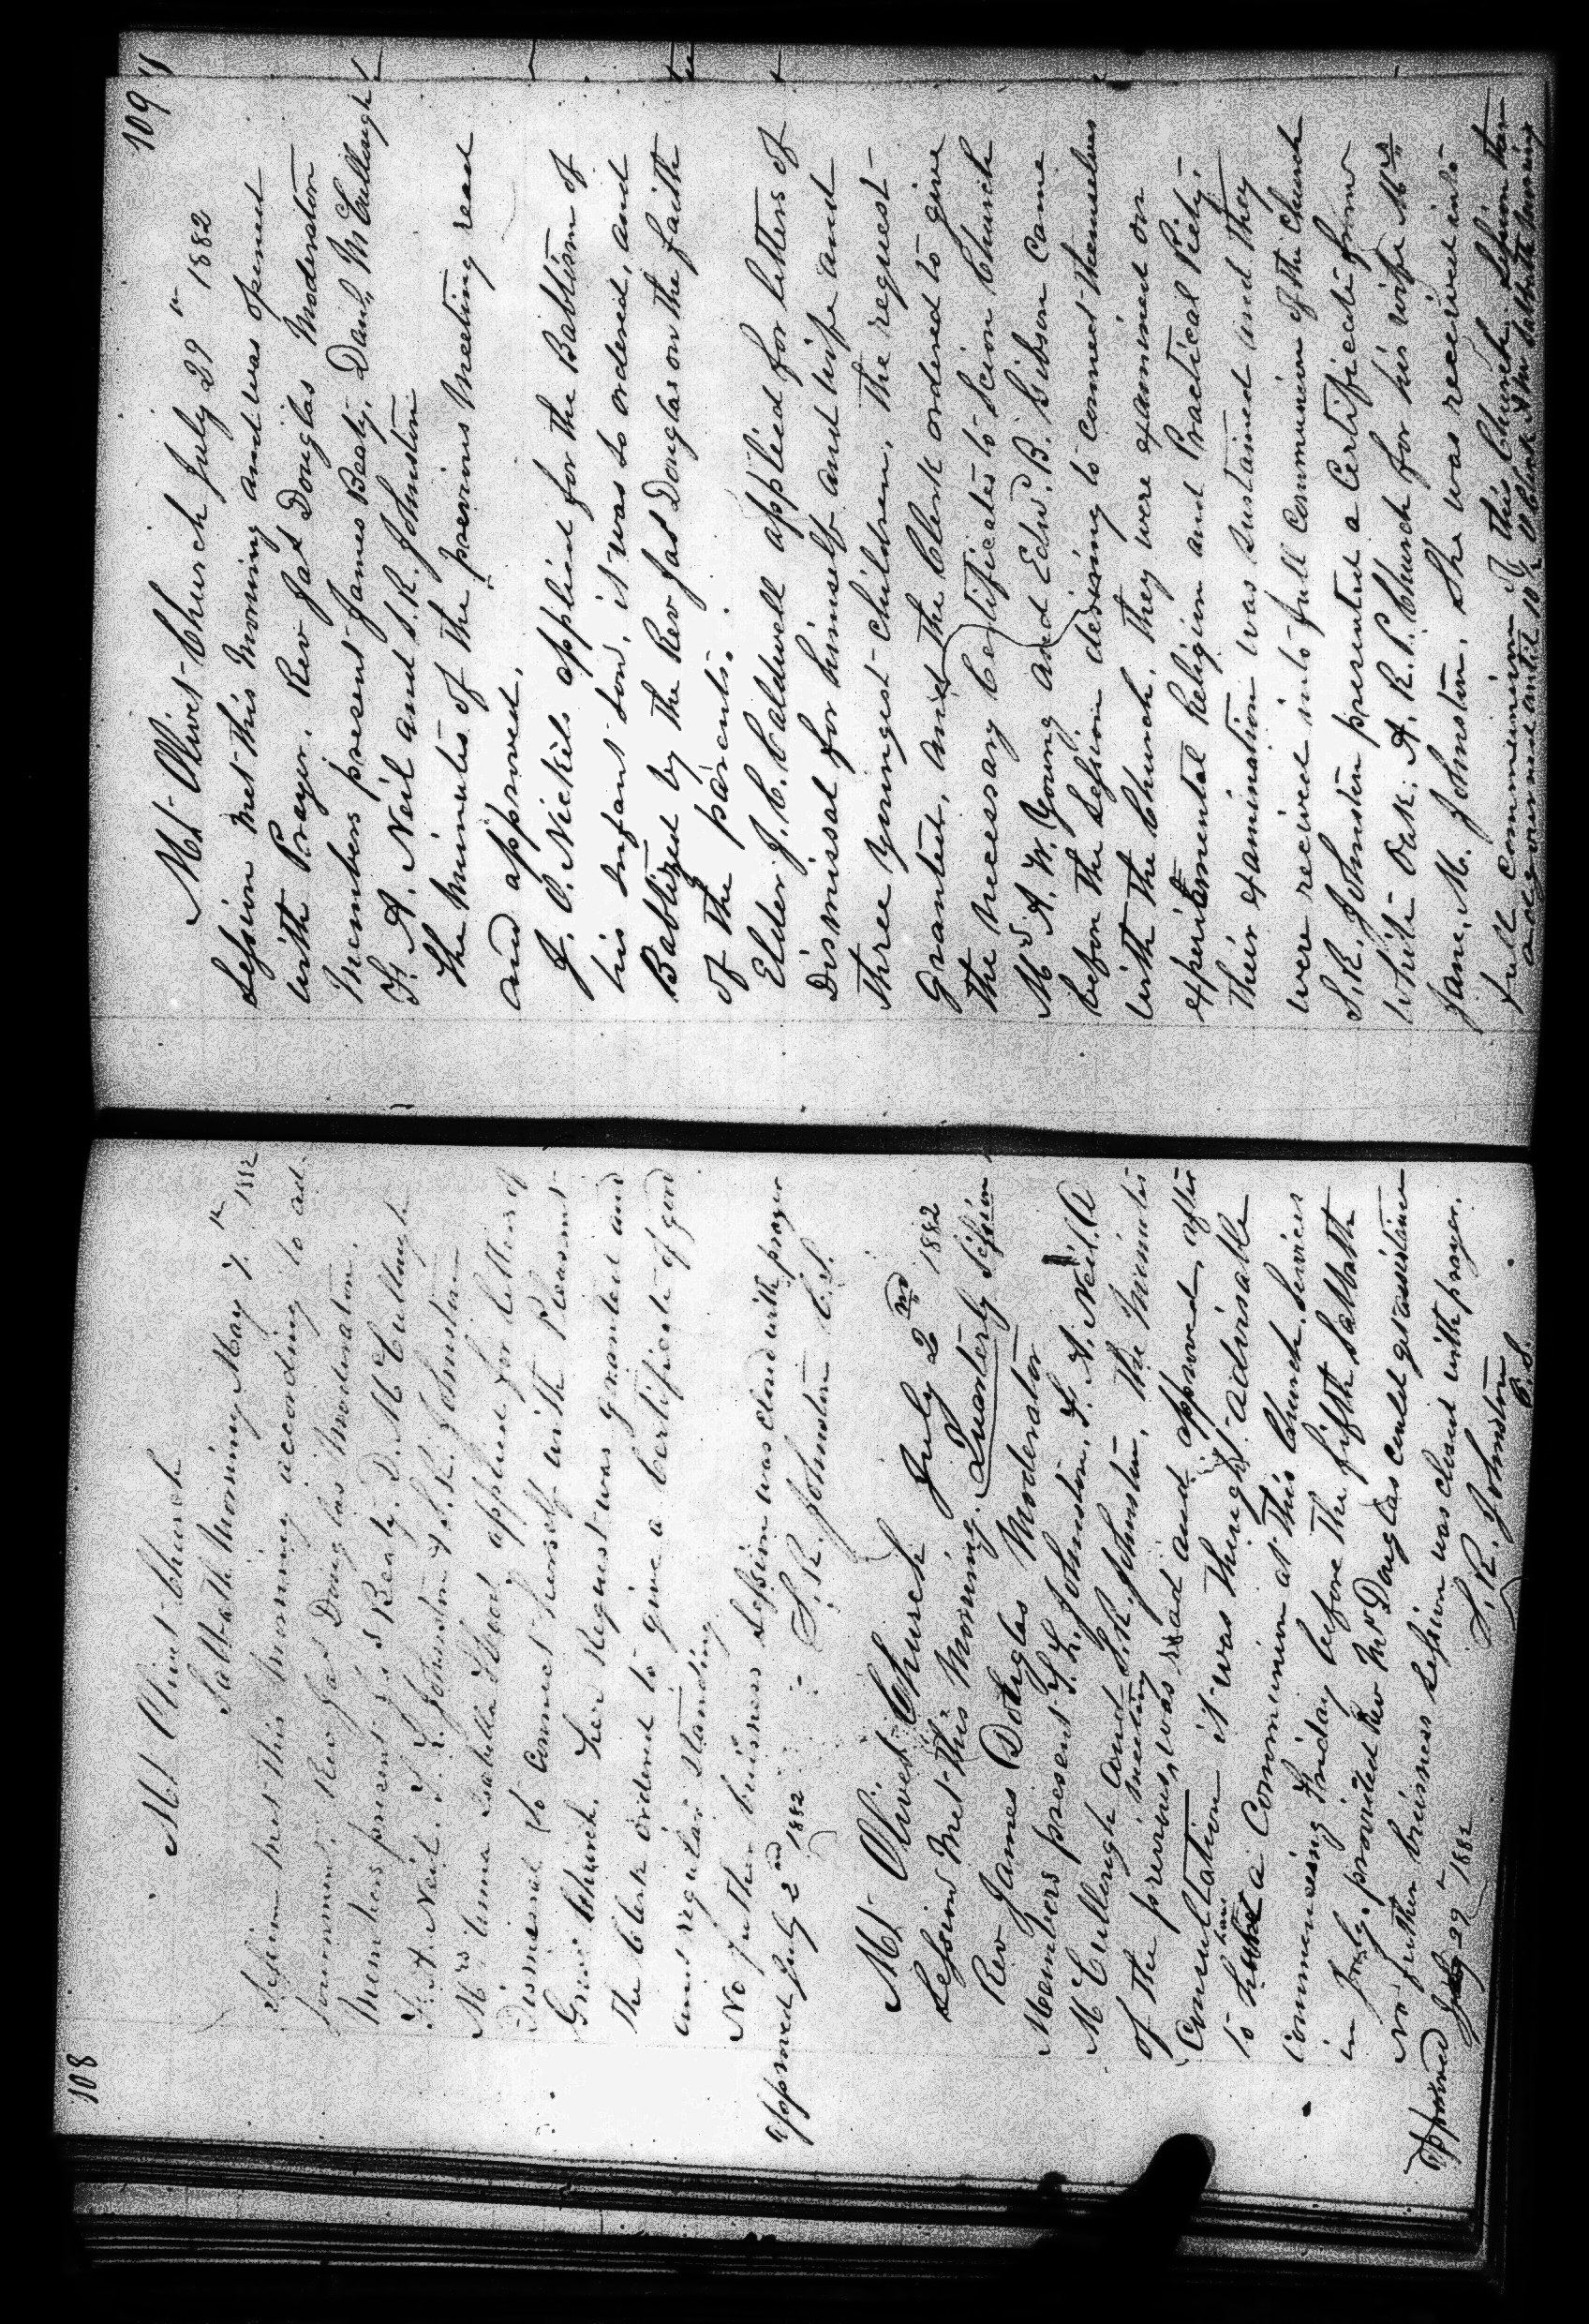 108
Mt Olivet Church
Sabbath Morning May 7th 1882
Session met this morning according to ad-
journment. Rev Jas Douglas Moderator.
Members present Jas Beaty. D. McCullough
F. A. Neil. F. L. Johnston & S. R. Johnston
Mrs Isabella applied for letters of
Dismissal to connect herself with Pleasant
Grove Church. her request was granted and
the Clerk ordered to give a Certificate of good
and regular standing
No further business Session was closed with prayer
approved July 2nd 1882 S. R. Johnston C. S.
Mt Olivet Church July 2nd 1882
Session Met this Morning. Quarterly Session
Rev James Douglas Moderator
Members present F. L. Johnston, F. A. Neil. D
McCullough and S. R. Johnston, the Minutes
of the previous meeting was read and approved, after
Consultation it was thought advisable
to have a Communion at this Church. Services
commencing Friday before the fifth Sabbath
in July. provided Rev Mr Douglas could get assistance
No further business Session was closed with prayer.
Approved July 29th 1882 S. R. Johnston
C. S.
109
Mt Olivet Church July 29th 1882
Session met this Morning and was opened
with Prayer. Rev Jas Douglas Moderator
Members present James Beaty, Danl McCullough
F. A. Neil and S. R. Johnston
the Minutes of the previous Meeting read
and approved.
J. O. Nickels applied for the Babtism of
his Infant Son, it was so ordered, and
Babtized by the Rev Jas Douglas on the faith
of the parents.
Elder J. C. Caldwell applied for letters of
Dismissal for himself and wife and
three youngest children, the request
granted, and the Clerk ordered to give
the necessary Certificates to Scion Church
Ms A. W. Young and Edw. B. Gibson came
before the Session desiring to connect themselves
with the Church, they were examined on
experimental Religion and Practical Piety,
their examination was sustained and they
were received into full communion of the Church
S. R. Johnston presented a Certificate from
White Oak. A. R. P. Church for his wife Mrs
Jane, M. Johnston. She was received into
full communion of this Church. Session then
adjourned until 10 O clock Sabbath morning